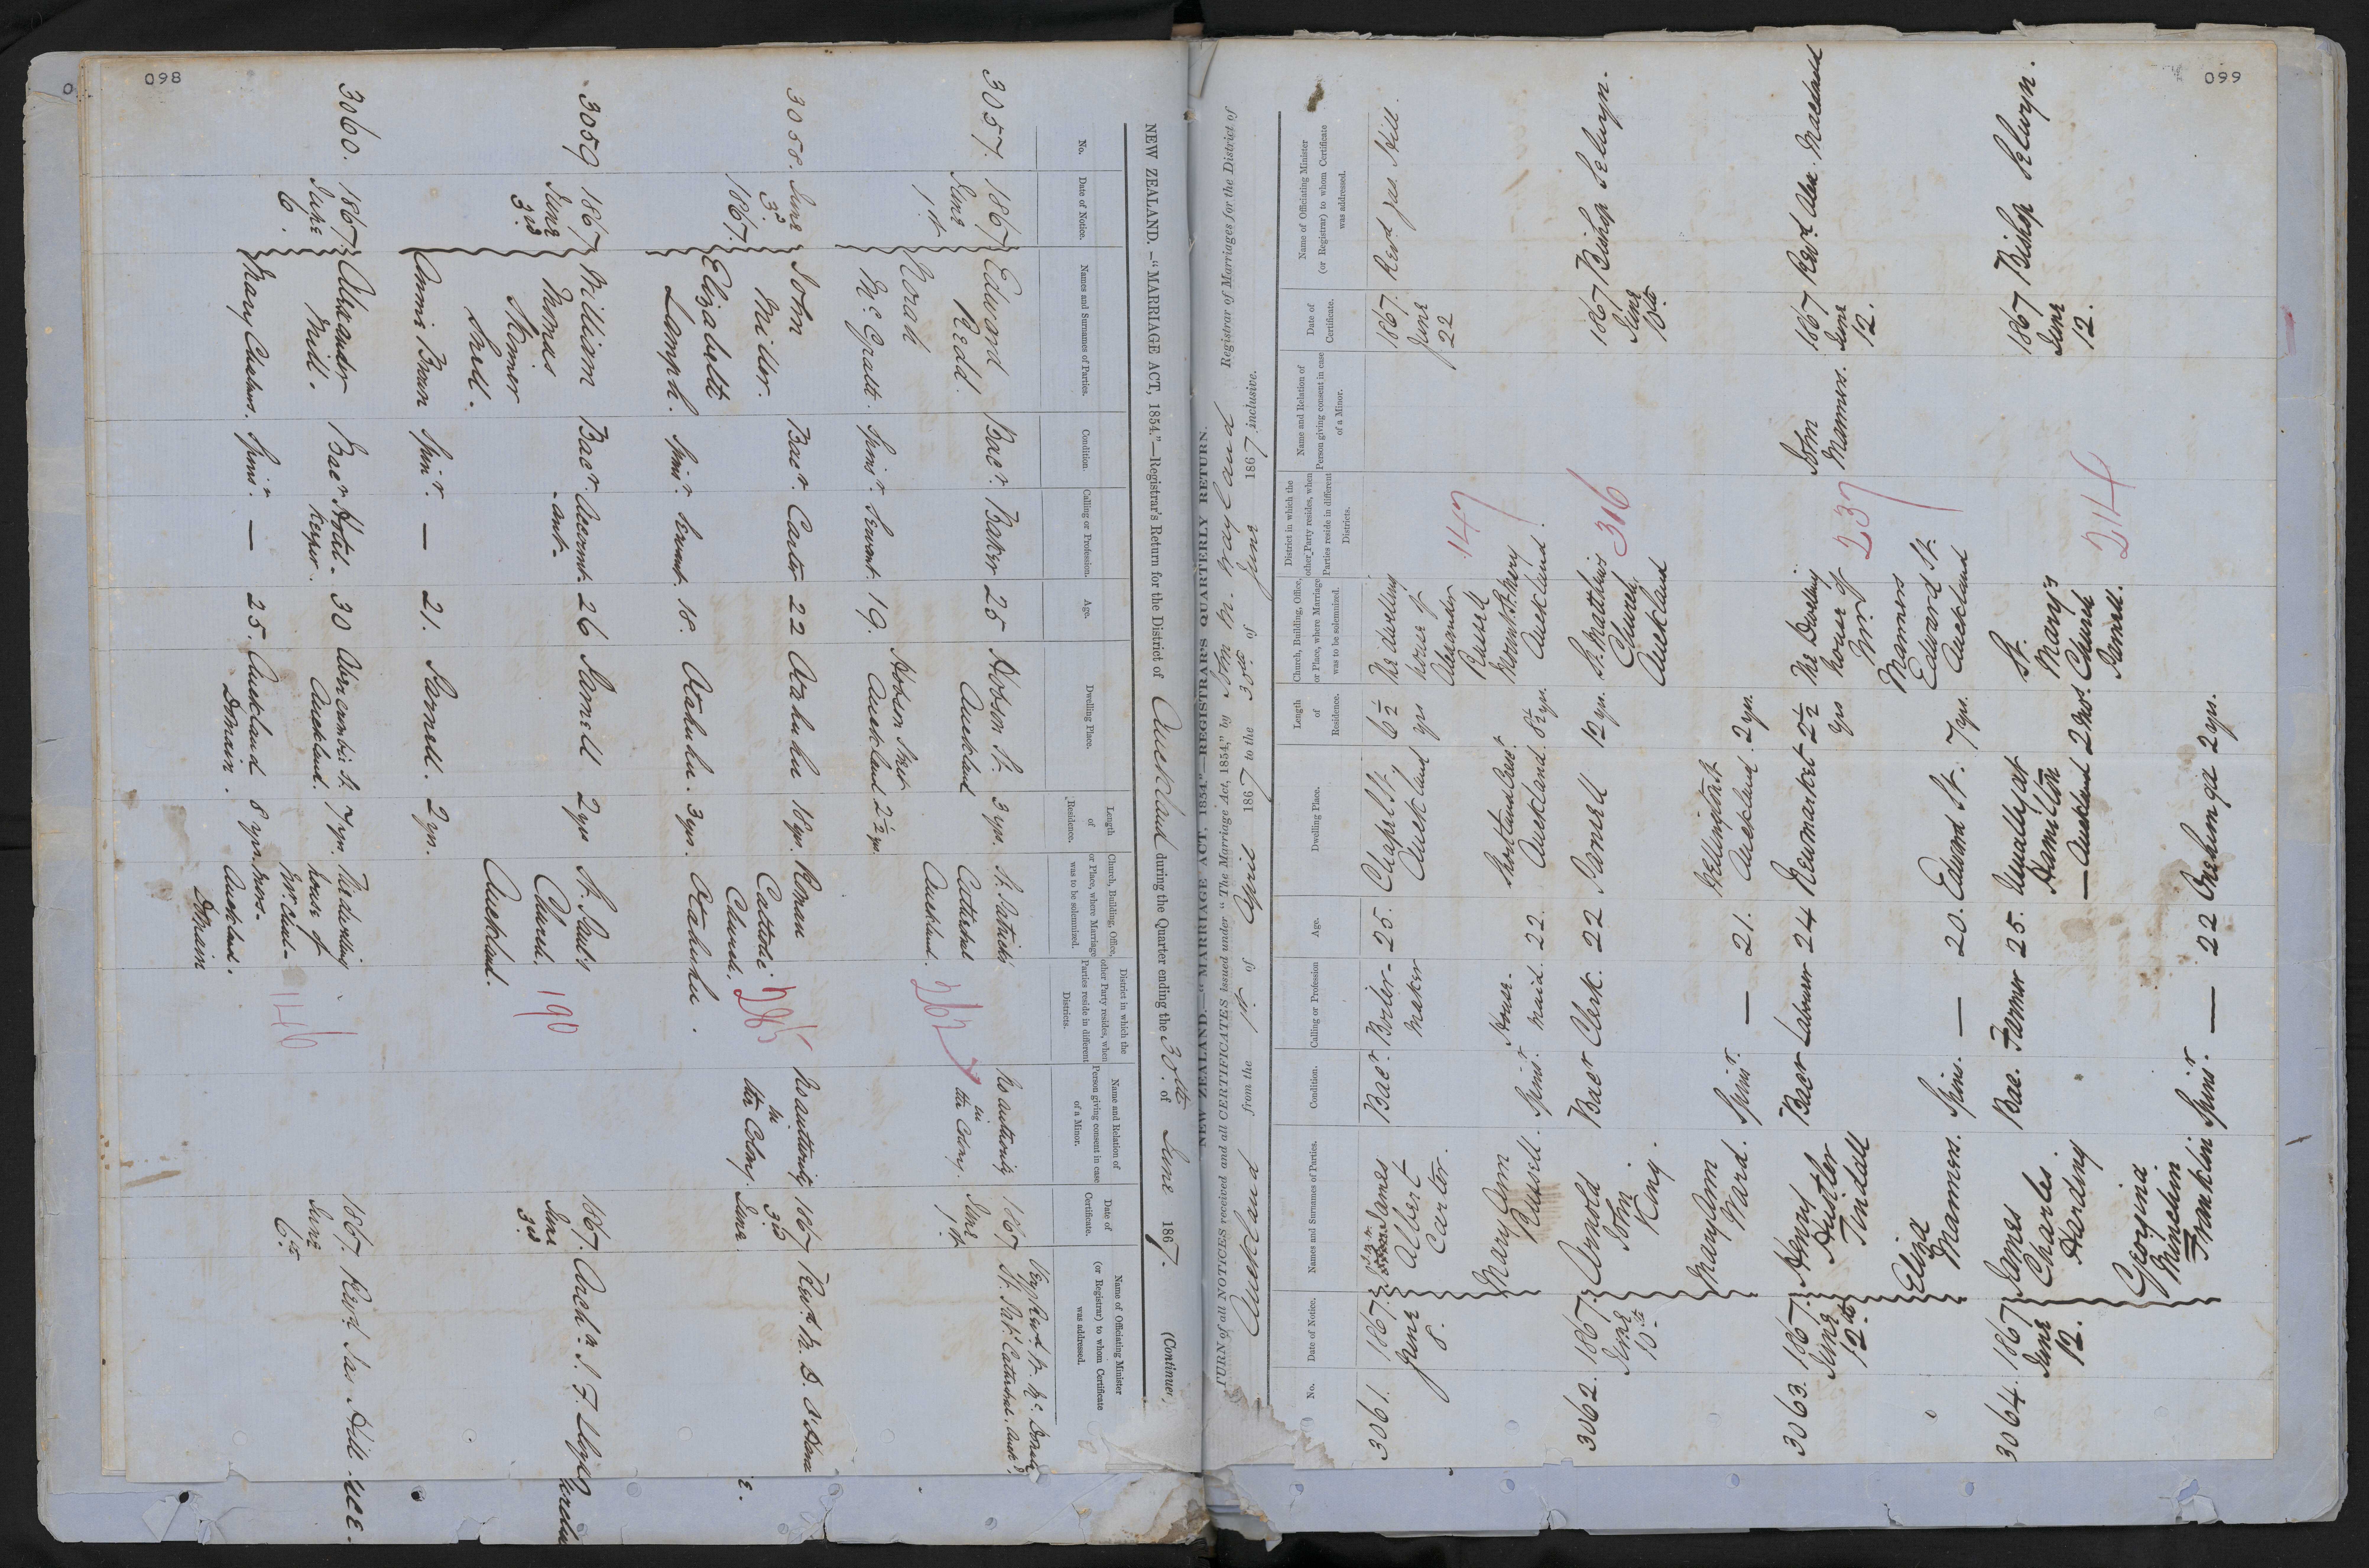 098
NEW ZEALAND.—"MARRIAGE ACT, 1854."—Registrar's Return for the District of Auckland during the Quarter ending the 30th of June 1867. (Continued
No.
Date of Notice.
Names and Surnames of Parties.
Condition.
Calling or Profession.
Age.
Dwelling Place.
Length of Residence.
Church, Building, Office, or Place, where Marriage was to be solemnized.
District in which the other Party resides, when Parties reside in different Districts.
Name and Relation of Person giving consent in case of a Minor.
Date of Certificate.
Name of Officiating Minister (or Registrar) to whom Certificate was addressed.
3057. 1867 June 1st
Edward Redd. Bacr. Baker 25 Hobson St. Auckland 3 yrs. St. Patrick's Cathedral Auckland.
267
No authority in the Colony.
1867 June 1st
Very Revd. W. Mc. Donald St. Pat. Cathedral. Auckd.
Norah Mc. Gratt. Spinr. Servant. 19. Hobson Street Auckland 2½ yrs.
3058. June 3d. 1867.
John Miller. Bacr. Carter 22 Otahuhu 18 yrs. Roman Catholic Church, Otahuhu.
285
No authority in the Colony.
1867 3d June
Revd. M. D. O'Hara
Elizabeth Lamph. Spinr. Servant. 18. Otahuhu. 3 yrs.
3059 1867 June 3rd
William Thomas Skinner Snell. Bacr. Account-ant. 26 Parnell 2 yrs St. Paul's Church. Auckland.
190
1867. June 3d
Archn. J. F. Lloyd
Annie Brown Spinr. — 21. Parnell. 2 yrs.
3060. 1867. June 6.
Alexander Mill. Bacr. Hotel-Keeper. 30 Abercrombie St. Auckland. 7 yrs. The dwelling house of Auckland. Domain
146
1867. June 6th.
Revd. Jas. Hill
Mary Cairns. Spinr. — 25. Auckland Domain. 8 yrs.
099
NEW ZEALAND.—"MARRIAGE ACT, 1854."—REGISTRAR'S QUARTERLY RETURN.
TURN of all NOTICES received and all CERTIFICATES issued under "The Marriage Act, 1854," by John M. Wayland Registrar of Marriages for the District of
Auckland from the 1st. of April 1867 to the 30th of June 1867 inclusive.
No.
Date of Notice.
Names and Surnames of Parties.
Condition.
Calling or Profession
Age.
Dwelling Place.
Length of Residence.
Church, Building, Office, or Place, where Marriage was to be solemnized.
District in which the other Party resides, when Parties reside in different Districts.
Name and Relation of Person giving consent in case of a Minor.
Date of Certificate.
Name of Officiating Minister (or Registrar) to whom Certificate was addressed.
3061. 1867. June 8.
James Albert Carter. Bacr. Boiler-maker 25. Chapel St. Auckland 6½ yrs The dwelling house of Alexander Russell Mount St. Mary Auckland.
147
1867. June 22
Revd Jas. Hill.
Mary Ann Russell. Spinr. House-maid. 22. Shortland Street Auckland. 8½ yrs.
3062. 1867. June 10th
Arnold John King. Bacr Clerk. 22 Parnell 12 yrs. St. Matthew's Church, Auckland
316
1867 June 10th
Bishop Selwyn.
Mary Ann Ward. Spinr. — 21. Wellington St Auckland. 2 yrs.
3063. 1867. June 12th
Henry Hunter Tindall Bacr Labourer 24 Newmarket 2½ yrs The Dwelling house of Mr. Manners Edward St. Auckland
237
John Manners.
1867 June 12.
Revd. Alex. Macdonald
Eliza Manners. Spins. — 20. Edward St. 7 yrs.
3064. 1867. June 12.
James Charles. Harding Bac. Farmer 25. Usually at Hamilton — Auckland 2 Mos. St. Mary's Church Parnell.
214
1867 June 12.
Bishop Selwyn.
Georgina Minchin Franklin Spinr. — 22 Onehunga 2 yrs.